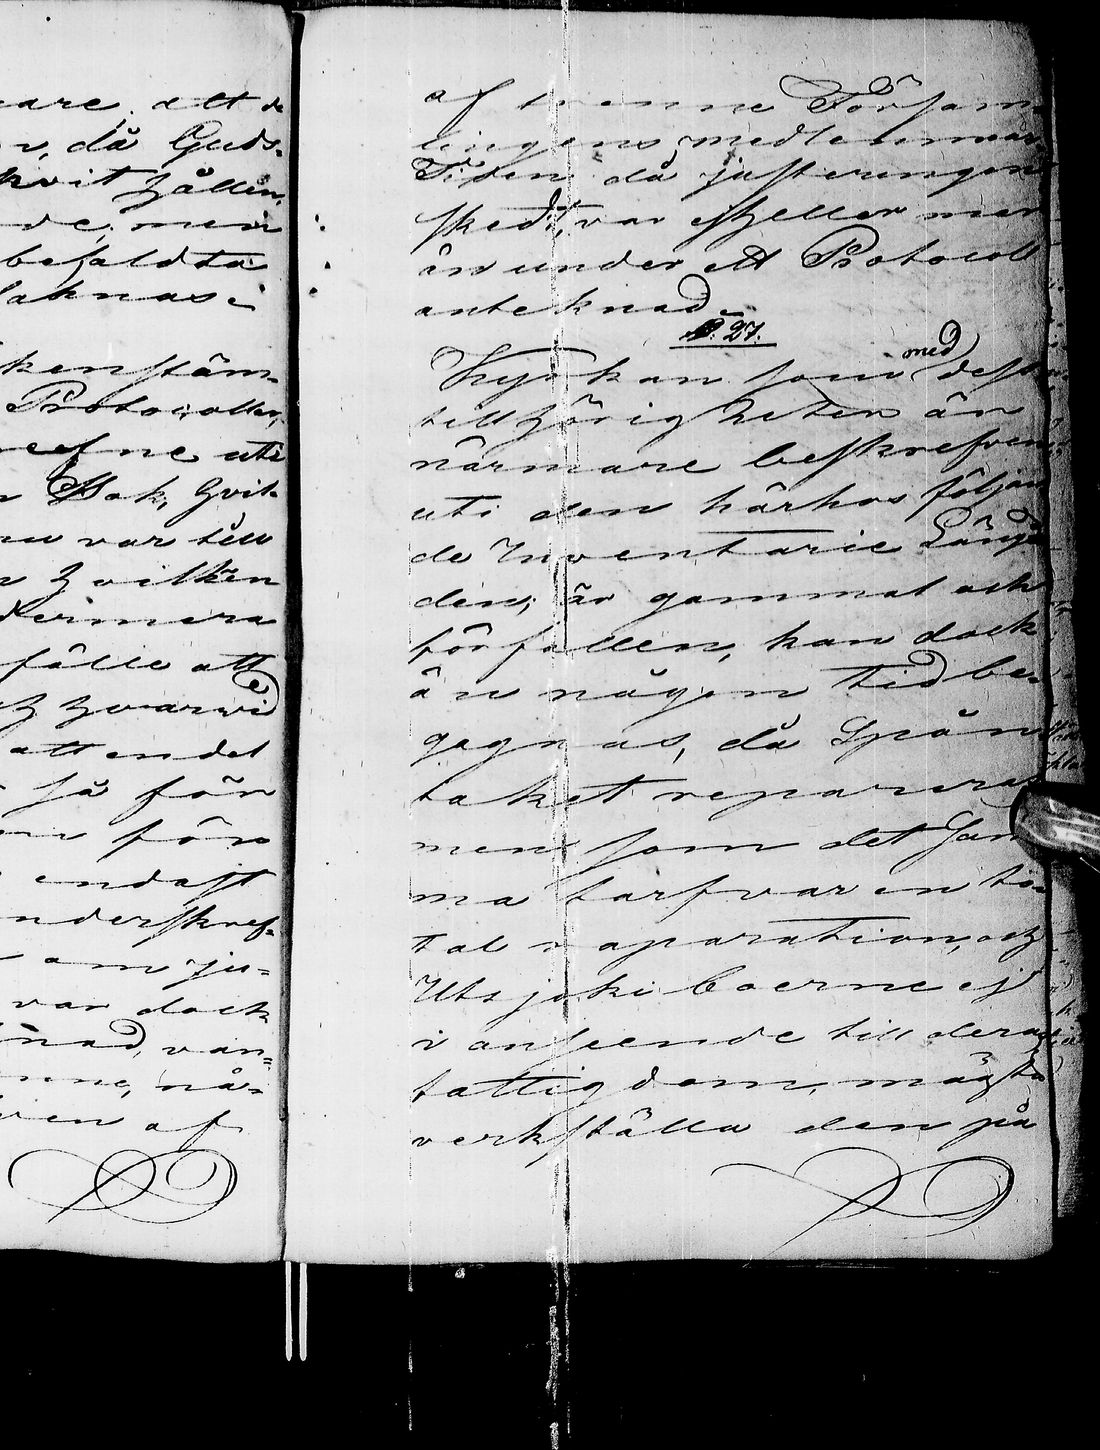 vare, att de
då Guds-
hållen,
de, men
befaldta
saknas i
kenstäm-
Protocoller,
refne uti
Bok, hvil-
nu var till
hvilken
dermera
fälle att
hvarvid
att endel
så för
före
endast
nderskref-
om ju-
var dock
nad, van-
inne, nå-
ven af
af trenne Försam-
lingens medlemmar.
Tiden då justeringen
skedt, var ej heller mer
än under ett Protocoll
anteknad.
§. 27.
Kyrkan som med dess
tillhörigheter är
närmare beskrefven
uti den härhos följan
de Inventarie Läng-
den, är gammal och
förfallen, kan dock
än någon tid be-
gagnas, då Spån
taket repareras
men som det sam
ma tarfvar en to-
tal raparation, och
Utsjoki boerne ej
i anseende till deras
fattigdom, mägta
verkställa den på